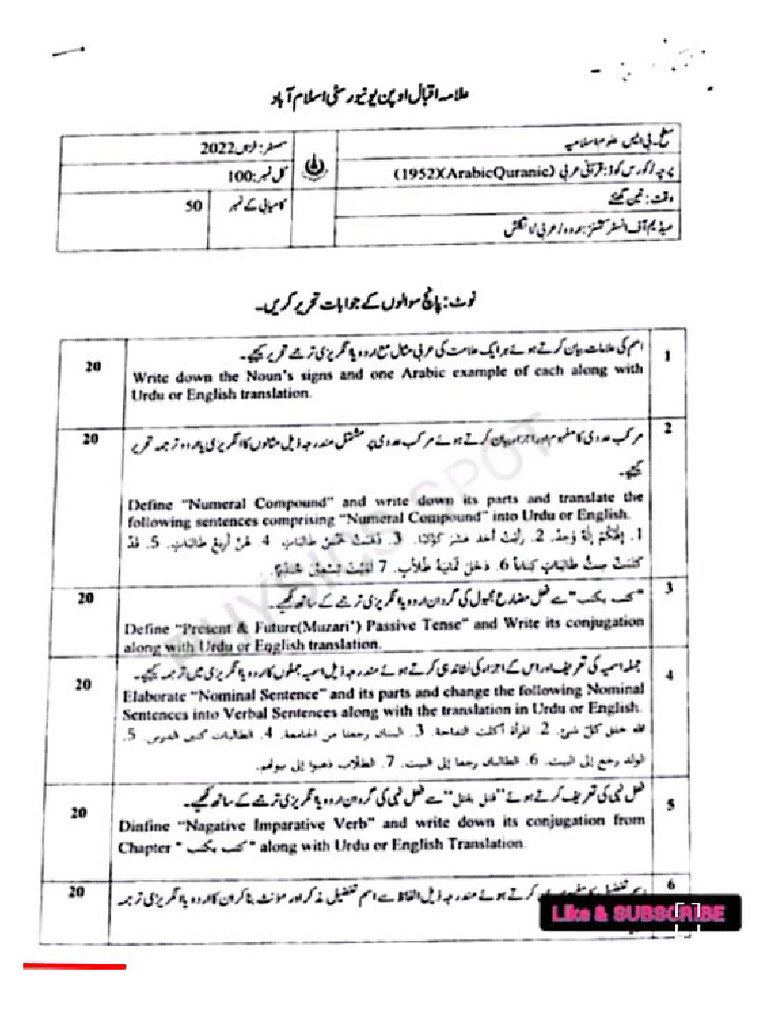 علامہ اقبال اوپن یونیورسٹی اسلام آباد
سطح۔ بی ایس علوم اسلامیہ
سمسٹر: خزاں 2022
پرچہ/کورس کوڈ: قرآنی عربی (1952XArabicQuranic)
کل نمبر: 100
وقت: تین گھنٹے
کامیابی کے نمبر 50
میڈیم آف انسٹرکشنز: اردو/عربی/انگلش
نوٹ: پانچ سوالوں کے جوابات تحریر کریں۔
1
اسم کی علامات بیان کرتے ہوئے ہر ایک علامت کی عربی مثال مع اردو یا انگریزی ترجمے تحریر کیجیے۔
20
Write down the Noun's signs and one Arabic example of each along with
Urdu or English translation.
2
مرکب عددی کا مفہوم اور اجزاء بیان کرتے ہوئے مرکب عددی پر مشتمل مندرجہ ذیل مثالوں کا انگریزی یا اردو ترجمہ تحریر
20
کیجیے۔
Define "Numeral Compound" and write down its parts and translate the
following sentences comprising "Numeral Compound" into Urdu or English.
1. إِلَٰهُكُمْ إِلَٰهٌ وَاحِدٌ. 2. رَأَيْتُ أَحَدَ عَشَرَ كَوْكَبًا. 3. ذَهَبَتْ خَمْسُ طَالِبَاتٍ. 4. هُنَّ أَرْبَعُ طَالِبَاتٍ. 5. قَدْ
كَتَبَتْ سِتُّ طَالِبَاتٍ كِتَابًا 6. دَخَلَ ثَمَانِيَةُ طُلَّابٍ. 7
3
"كتب يكتب" سے فعل مضارع مجہول کی گردان اردو یا انگریزی ترجمے کے ساتھ لکھیے۔
20
Define "Present & Future(Muzari') Passive Tense" and Write its conjugation
along with Urdu or English translation.
4
جملہ اسمیہ کی تعریف اور اس کے اجزاء کی نشاندہی کرتے ہوئے مندرجہ ذیل اسمیہ جملوں کا اردو یا انگریزی میں ترجمہ کیجیے۔
20
Elaborate "Nominal Sentence" and its parts and change the following Nominal
Sentences into Verbal Sentences along with the translation in Urdu or English.
الله خلق كل شيئ. 2. المرأة أكلت التفاحة. 3. البنتان رجعتا من الجامعة. 4. الطالبات كتبن الدرس. 5.
الولد رجع إلى البيت. 6. الطالبان رجعا إلى البيت. 7. الطلاب ذهبوا إلى بيوتهم.
5
فعل نہی کی تعریف کرتے ہوئے سے فعل نہی کی گردان اردو یا انگریزی ترجمے کے ساتھ لکھیے۔
20
Dinfine "Nagative Imparative Verb" and write down its conjugation from
Chapter "كتب يكتب" along with Urdu or English Translation.
6
اسم تفضیل کا مفہوم بیان کرتے ہوئے مندرجہ ذیل الفاظ سے اسم تفضیل مذکر اور مؤنث بنا کر ان کا اردو یا انگریزی ترجمہ
20
Like & SUBSCRIBE
PHYSICS SPOT